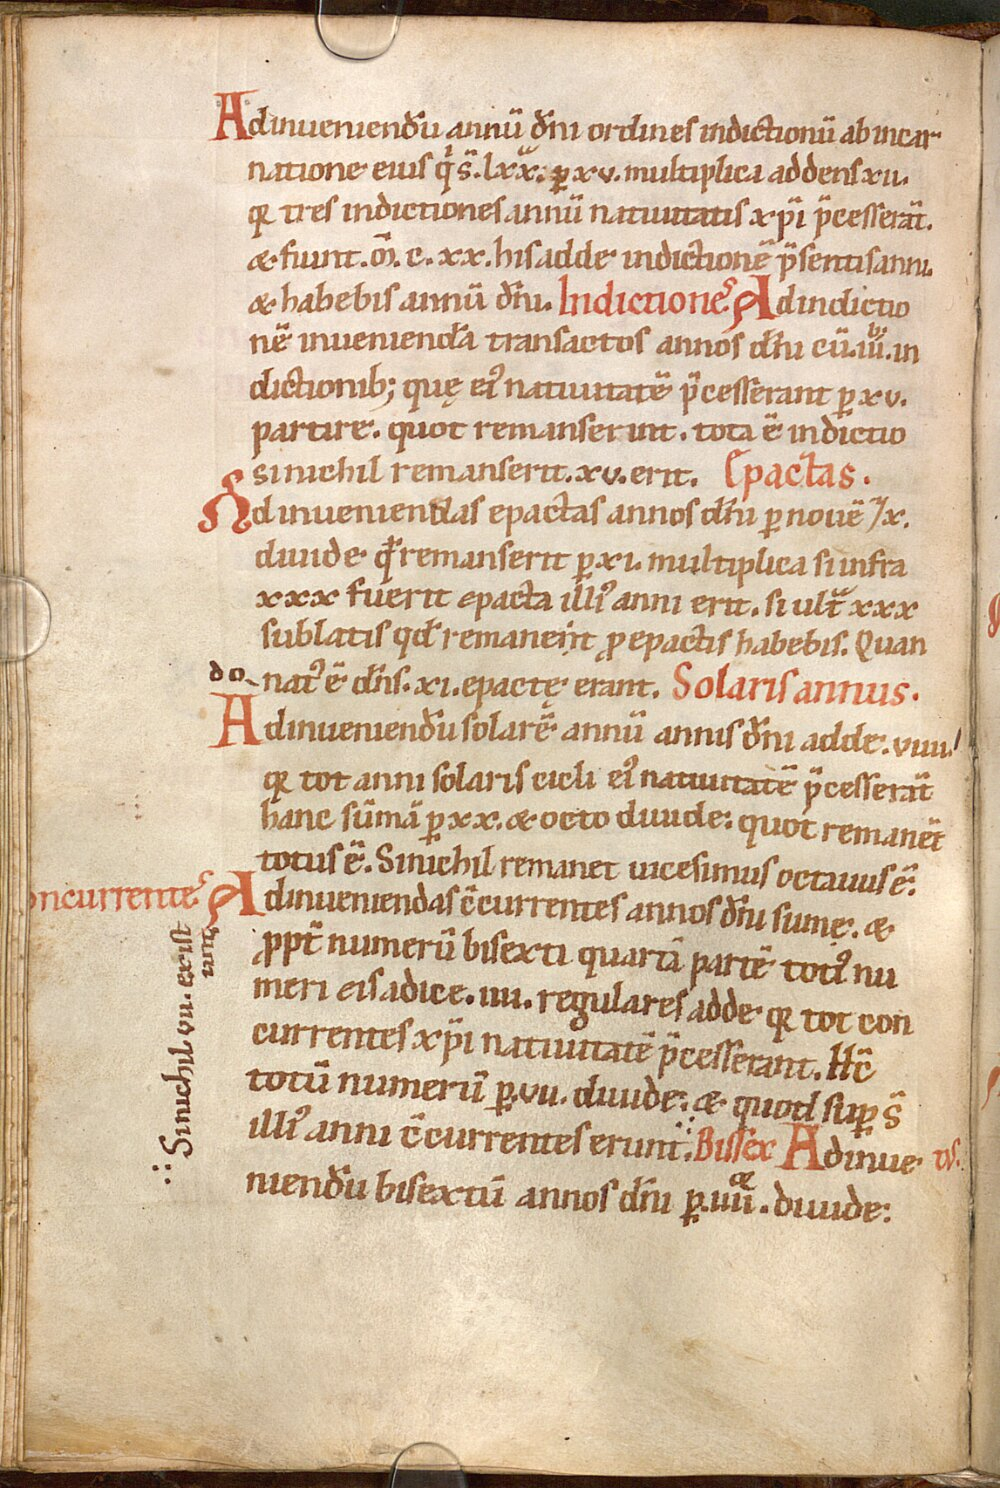 Adinueniendũ annũ dñi ordines indictionũ ab incar
natione eius q̇ s̃. lxx. p̱ xv. multiplica addens xii.
q̃ tres indictiones annũ natiuitatis xp̃i p̃cesserãt.
& fiunt. ō. c. xx. his adde indictionẽ p̃sentis anni.
& habebis annũ dñi. Indictiones Ad indictio
nẽ inuenienda transactos annos dñi cũ .iii. in
dictionib; quę ei᾿ natiuitatẽ p̃cesserant p̱ xv.
partire. quot remanserint. tota ẽ indictio
si nichil remanserit. xv. erit. Epactas.
Ad inueniendas epactas annos dñi p̱ nouẽ ⁊ x.
diuide qđ remanserit p̱ xi. multiplica si infra
xxx fuerit epacta illi᾿ anni erit. si ult̃ xxx
sublatis qđ remanerit p̱ epactis habebis. Quan
do nat᾿ ẽ dñs. xi. epactę erant. Solaris annus.
Ad inueniendũ solarẽ annũ annis dñi adde. viiii.
q̃ tot anni solaris cicli ei᾿ natiuitatẽ p̃cesserãt
hanc sũmã p̱ xx. & octo diuide: quot remanẽt
totus ẽ. Si nichil remanet uicesimus octauus ẽ.
oncurrentes Ad inueniendas c̃currentes annos dñi sume. &
p̱pt̃ numerũ bisexti quartã partẽ toti᾿ nu
meri eis adice. iiii. regulares adde q̃ tot con
currentes xp̃i natiuitatẽ p̃cesserant. Hc̃
totũ numerũ p̱ .vii. diuide. & quod sup̱ s̃
illi᾿ anni c̃currentes erunt ∴ Bissex tus. Ad inue
niendũ bisextũ annos dñi p̱ .iiii. diuide:
∴ Si nichil vii. exist
unt